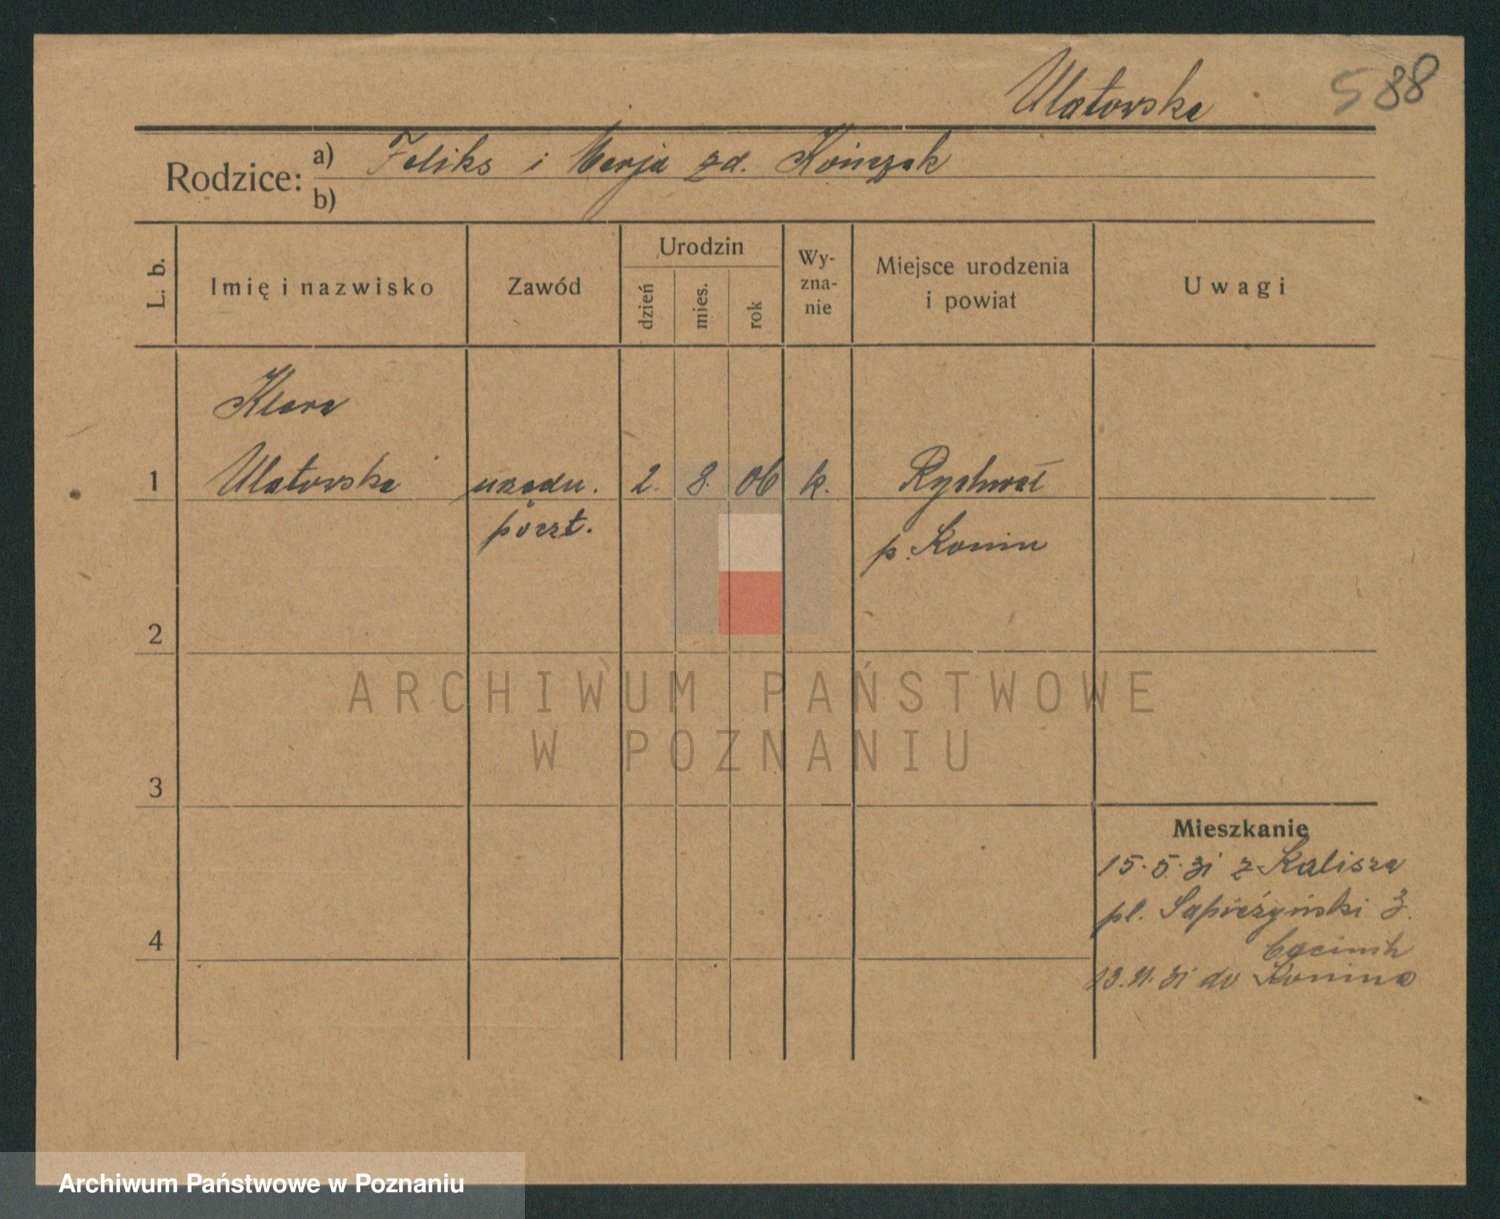 Ulatowska
588
Rodzice: a) Feliks i Marja zd.
b)
L. b.
Imię i nazwisko
Zawód
Urodzin
dzień
mies.
rok
Wy-
zna-
nie
Miejsce urodzenia
i powiat
Uwagi
Klara
1 Ulatowska urzędn. 2. 8. 06 k. Rychwał
poczt. p. Konin
2
3
4
Mieszkanie
15.5.31 z Kalisza
pl. Sapieżyński 3.
do Konina
ARCHIWUM PAŃSTWOWE
W POZNANIU
Archiwum Państwowe w Poznaniu